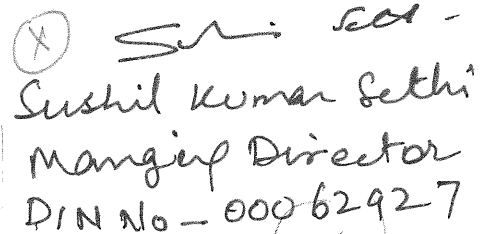 X
Sushil Kumar Sethi
Manging Director
DIN No - 00062927